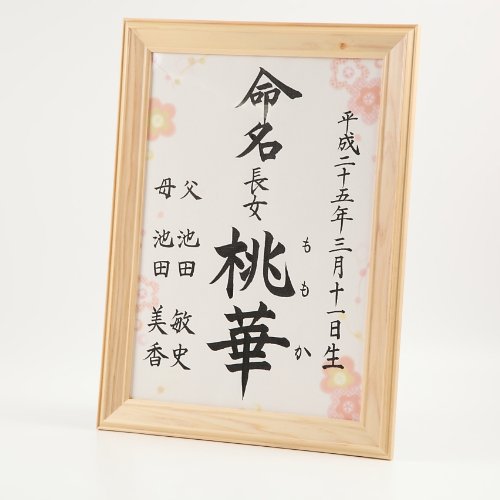 平成二十五年三月十一日生
命名
長女
桃華
ももか
父 池田 敏史
母 池田 美香